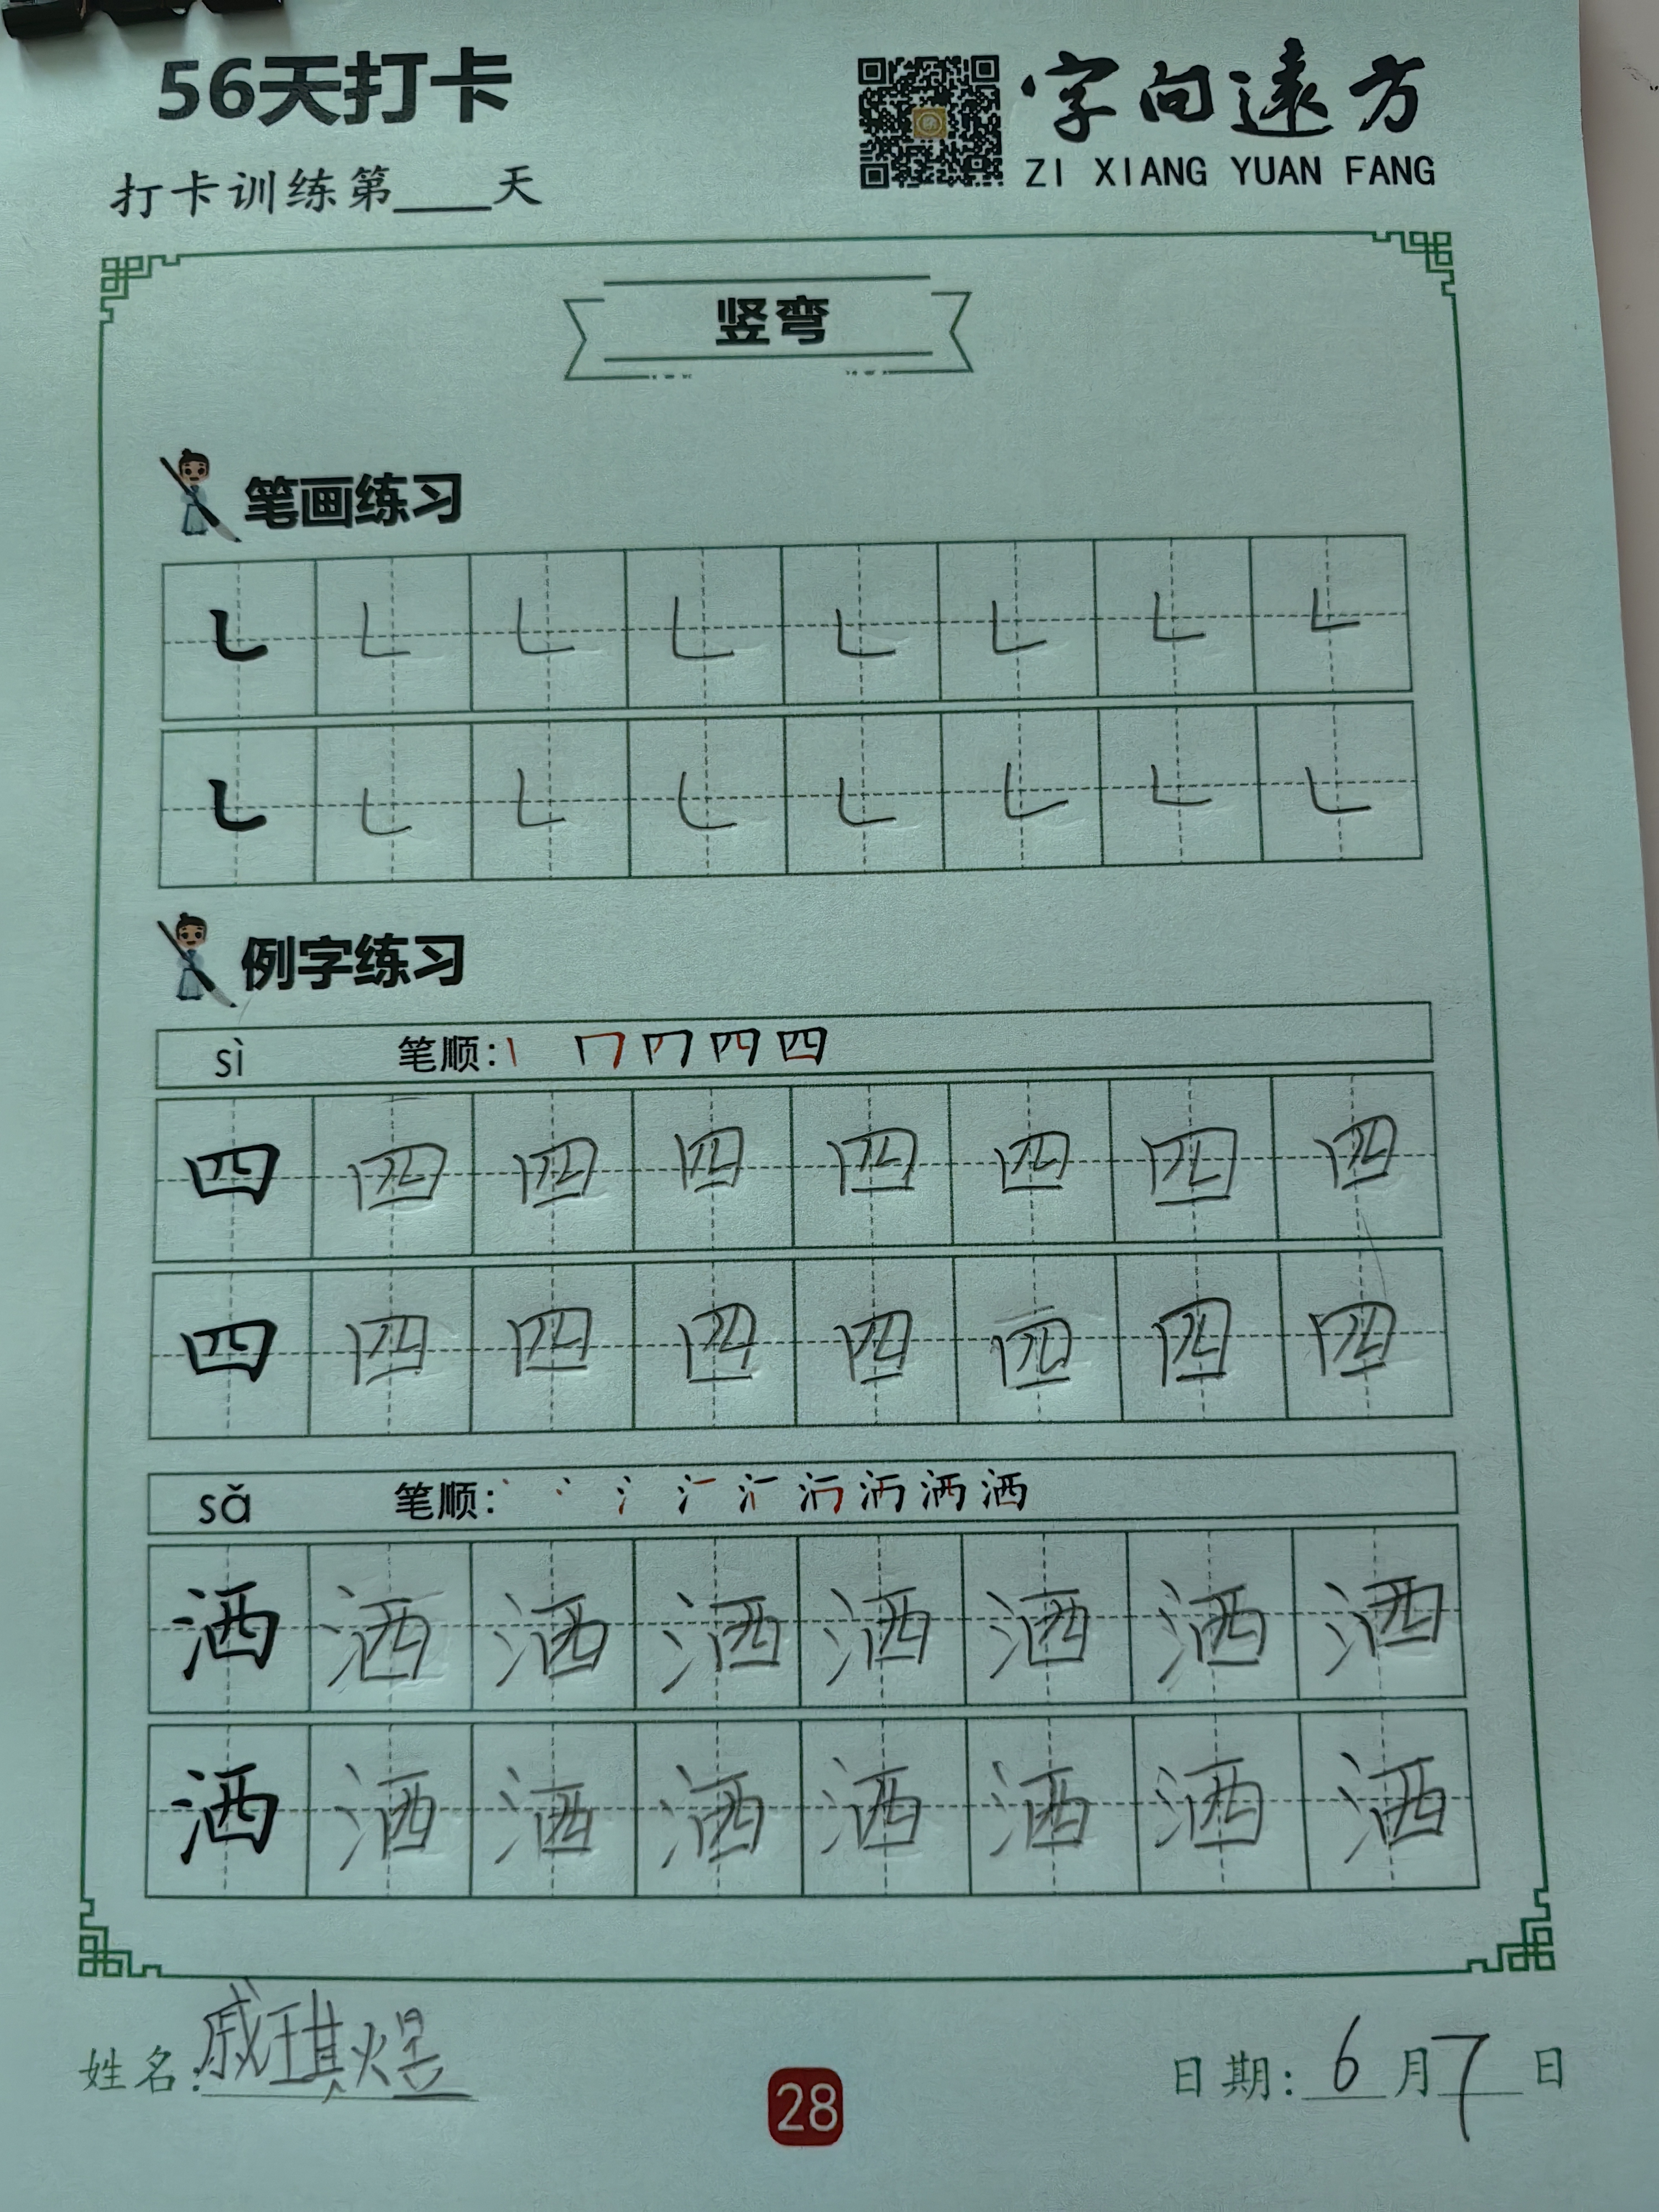 56天打卡
字向遠方
ZI XIANG YUAN FANG
打卡训练第____天
竖弯
笔画练习
㇄ ㇄ ㇄ ㇄ ㇄ ㇄ ㇄ ㇄
㇄ ㇄ ㇄ ㇄ ㇄ ㇄ ㇄ ㇄
例字练习
sì 笔顺:
四 四 四 四 四 四 四 四
四 四 四 四 四 四 四 四
sǎ 笔顺:
洒 洒 洒 洒 洒 洒 洒 洒
洒 洒 洒 洒 洒 洒 洒 洒
姓名:戚琪煜
28
日期:6月7日